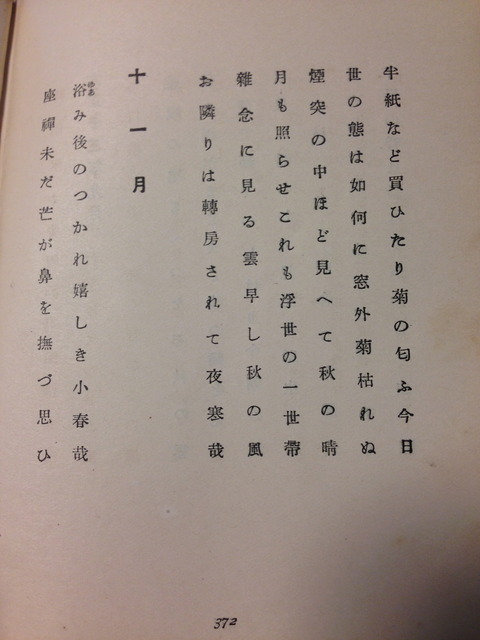 半紙など買ひたり菊の匂ふ今日
世の態は如何に窓外菊枯れぬ
煙突の中ほど見へて秋の晴
月も照らせこれも浮世の一世帶
雜念に見る雲早し秋の風
お隣りは轉房されて夜寒哉
十一月
浴み後のつかれ嬉しき小春哉
座禪未だ芒が鼻を撫づ思ひ
372